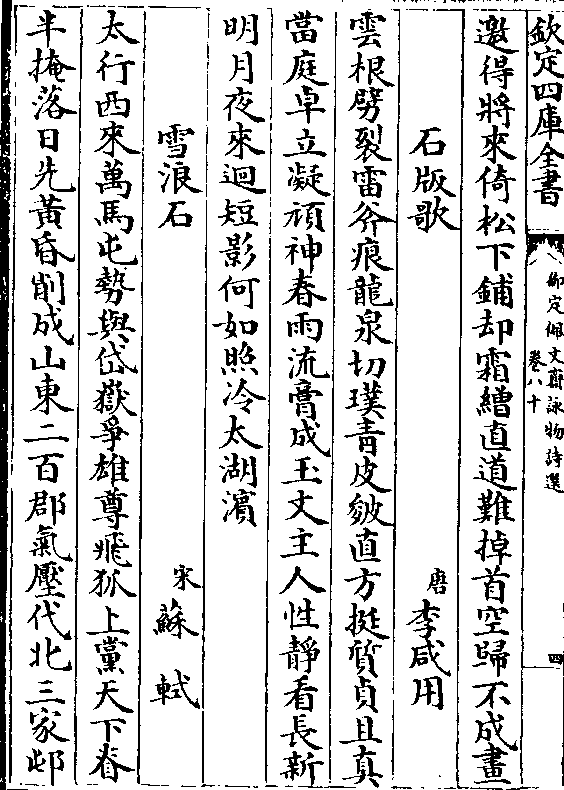 欽定四庫全書
御定佩文齋詠物詩選
卷八十
四
邀得將來倚松下鋪却霜繒直道難掉首空歸不成畫
石版歌
唐李咸用
雲根劈裂雷斧痕龍泉切璞青皮皴直方挺質貞且真
當庭卓立凝頑神春雨流膏成玉文主人性靜看長新
明月夜來迴短影何如照冷太湖濱
雪浪石
宋蘇軾
太行西來萬馬屯勢與岱嶽爭雄尊飛狐上黨天下脊
半掩落日先黃昏削成山東二百郡氣壓代北三家邨